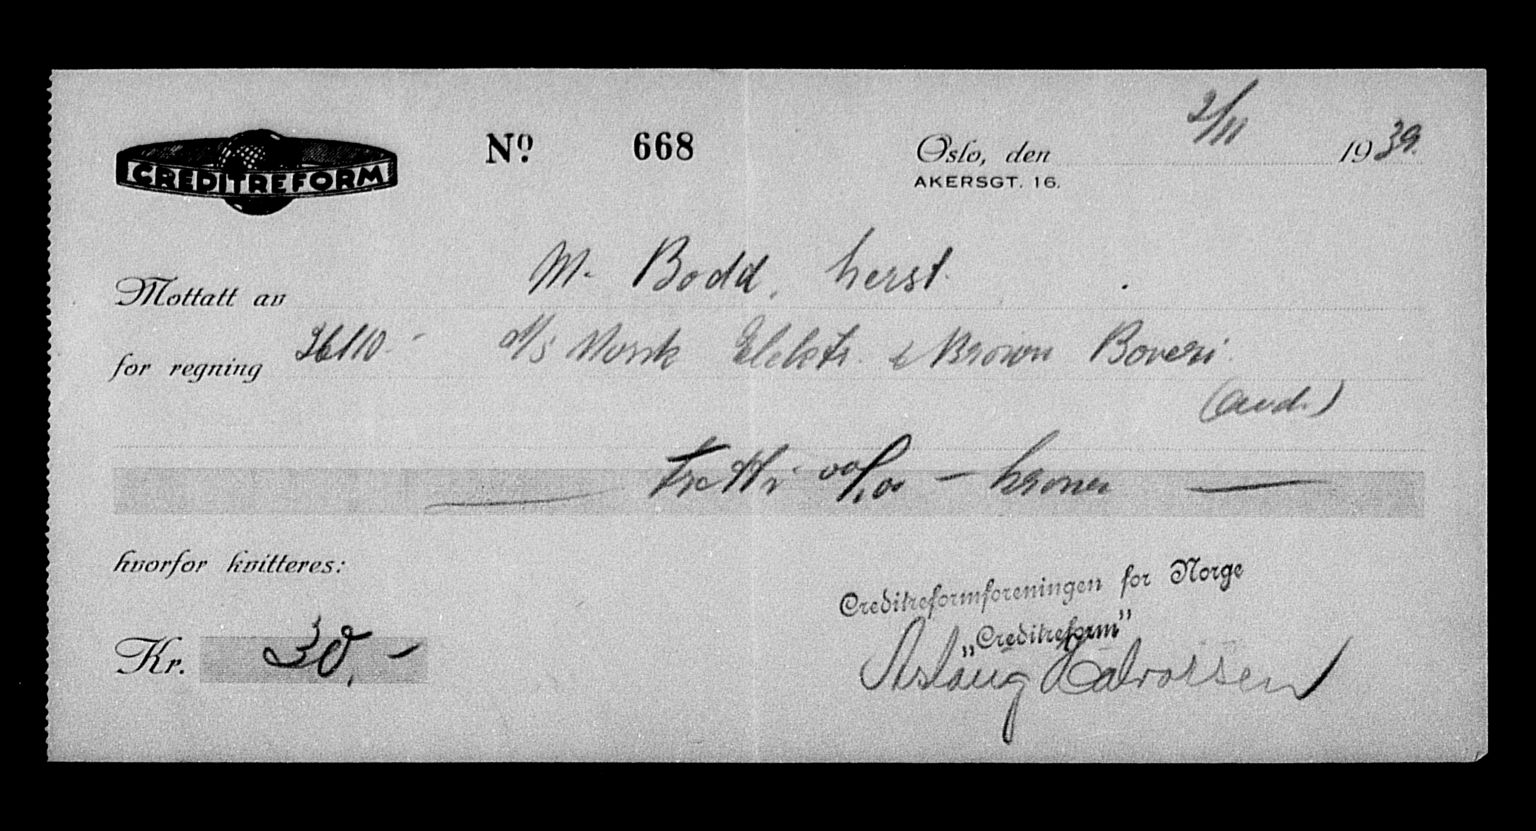 CREDITREFORM
Nº 668
Oslo, den 2/11 1939.
AKERSGT. 16.
Mottatt av M. Bodd, herst.
for regning A/S Norsk Elektr. & Brown Boveri
(avd.)
tretti 00/00 — kroner —
hvorfor kvitteres:
Kr. 30,-
Creditreformforeningen for Norge
„Creditreform”
Aslaug Halvorsen